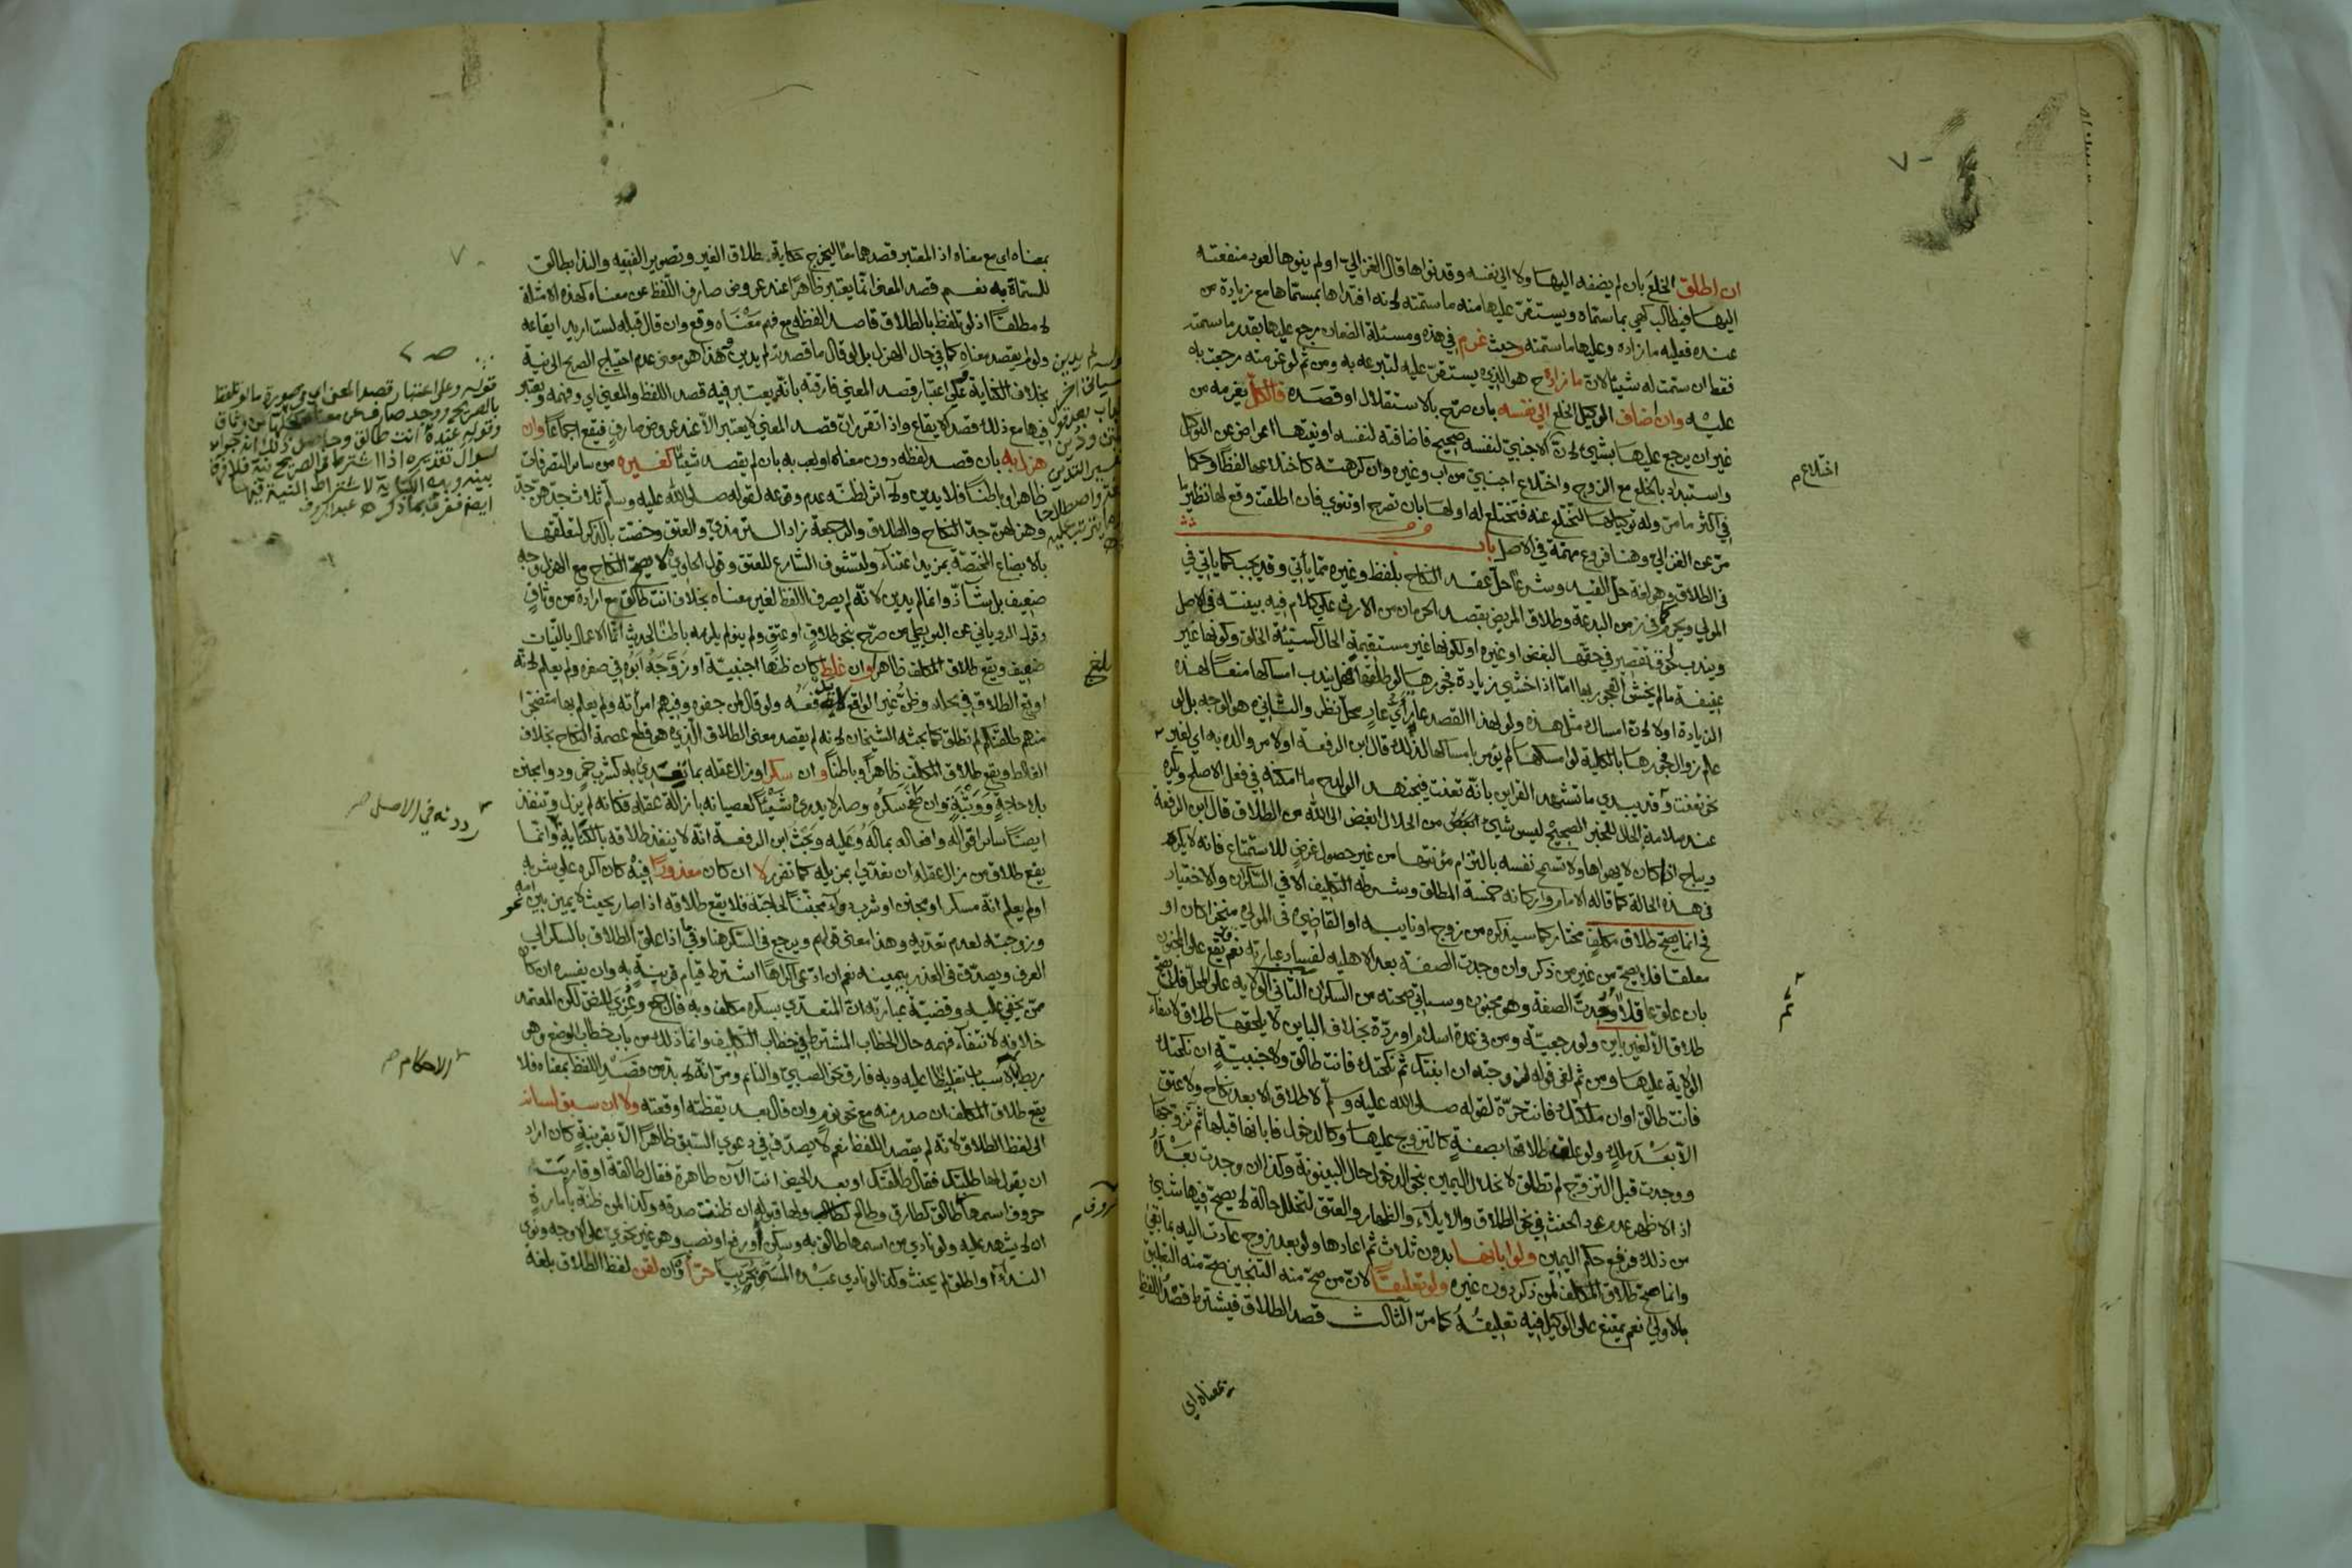 ان اطلق الخلع بان لم يضفه اليها ولا الى نفسه وقد نواها قال الغزالي او لم ينوها لعود منفعته
اليها فيطالب كهي بما سماه ويستقر عليها منه ما سمته لانه افتداها بمسماها مع زيادة من
عنده فعليه ما زاده وعليها ما سمته وحيث غرم في هذه ومسئلة الضمان رجع عليها بقدر ما سمته
فقط ان سمت له شيئا لان ما زاده ح هو الذي يستقر عليه لتبرعه به ومن ثم لو غرمته رجعت به
عليه وان اضاف الوكيل الخلع الى نفسه بان صرح بالاستقلال او قصده فالكل يغرمه من
غير ان يرجع عليها بشيئ لان الاجنبي لنفسه صحيح فاضافته لنفسه او نيتها اعراض عن التوكيل
واستبداد بالخلع مع الزوج واختلاع اجنبي من اب وغيره وان كرهته كاختلاعها لفظا وحكما
في اكثر ما مر وله توكيلها لتختلع عنه فتختلع له او لها بان تصرح او تنوي فان اطلقت وقع لها نظير ما
مر عن الغزالي وهنا فروع مهمة في الاصل باب
في الطلاق وهو لغة حل القيد وشرعا حل عقد النكاح بلفظ وغيره مما يأتي وقد يجب كما يأتي في
المولي ويحرم كما في زمن البدعة وطلاق المريض بقصد الحرمان من الارث على كلام فيه بينته في الاصل
ويندب لخوف تقصير في حقها لبغض او غيره او لكونها غير مستقيمة الحال كسيئة الخلق وكونها غير
عفيفة ما لم يخش الفجور بها اما اذا خشي زيادة فجورها لو طلقها فهل يندب امساكها منعا لهذه
الزيادة او لا لان امساك مثل هذه ولو لهذا القصد عار اي عار محل نظر والثاني هو الاوجه بل لو
علم زوال فجورها بالكلية لو امسكها لم يؤمر بامساكها لذلك قال ابن الرفعة او لامر والده به اي لغير
نحو تعنت وقد يبدي ما تشهد القراين بانه تعنت فيجتهد الولد ح ما امكنه في فعل الاصلح ويكره
عند سلامة الحال للخبر الصحيح ليس شيئ من الحلال ابغض الى الله من الطلاق قال ابن الرفعة
ويباح اذا كان لا يهواها ولا تسمح نفسه بالتزام مؤنتها من غير حصول غرض للاستمتاع فانه لا يكره
في هذه الحالة كما قاله الامام واركانه خمسة المطلق وشرطه التكليف الا في السكران والاختيار
فح انما يصح طلاق مكلف مختار كما سيذكره من زوج او نايبه او القاضي في المولي منجزا كان او
معلقا فلا يصح من غير من ذكر وان وجدت الصفة بعد الاهلية لفساد عبارته نعم يقع على المجنون
بان علق عاقلا وجدت الصفة وهو مجنون وسياتي صحته من السكران الثاني الولاية على المحل فلا يصح
طلاق الا لغير باين ولو رجعية ومن في عدة اسلام او ردة بخلاف الباين لا يلحقها طلاق لانتفاء
الولاية عليها ومن ثم لغى قوله لزوجته ان ابنتك ثم نكحتك فانت طالق ولاجنبية ان نكحتك
فانت طالق او ان ملكتك فانت حرة لقوله صلى الله عليه وسلم لا طلاق الا بعد نكاح ولا عتق
الا بعد ملك ولو علق طلاقها بصفة كالتزوج عليها وكالدخول فابانها قبلها ثم تزوجها
ووجدت قبل التزوج لم تطلق لانحلال اليمين بنحو الدخول حال البينونة وكذا ان وجدت بعده
اذ الاظهر عدم عود الحنث في نحو الطلاق والايلاء والظهار والعتق لتخلل حالة لا يصح فيها شيئ
من ذلك فرفع حكم اليمين ولو ابانها بدون ثلاث ثم اعادها ولو بعد زوج عادت اليه بما بقي
وانما صح طلاق المكلف لمن ذكر دون غيره ولو تعليقا لان من صح منه التنجيز صح منه التعليق
بالاولى نعم يمتنع على الوكيل فيه تعليقه كما مر الثالث قصد الطلاق فيشترط قصد اللفظ
بمعناه اي
اختلاع م
بمعناه اي مع معناه اذ المعتبر قصدهما معا ليخرج حكاية طلاق الغير وتصوير الفقيه والندا بطالق
للسماة به نعم قصد المعنى انما يعتبر ظاهرا عند عروض صارف اللفظ عن معناه كهذه الامثلة
لا مطلقا اذ لو تلفظ بالطلاق قاصدا لفظه مع فهم معناه وقع وان قال قبله لست اريد ايقاعه
ولو لم يقصد معناه كما في حال الهزل بل لو قال ما قصدته لم يدين وهذا هو معنى عدم احتياج الصريح الى نية
بخلاف الكناية وعلى اعتبار قصد المعنى فارقته بانه يعتبر فيه قصد اللفظ والمعنى اي وفهمه ويعتبر
فيها مع ذلك قصد الايقاع واذا تقرر ان قصد المعنى لا يعتبر الا عند عروض صارف فيقع اجماعا وان
هزل به بان قصد لفظه دون معناه او لعب به بان لم يقصد شيئا كغيره من ساير التصرفات
ظاهرا وباطنا فلا يدين ولا اثر لظنه عدم وقوعه لقوله صلى الله عليه وسلم ثلاث جدهن جد
وهزلهن جد النكاح والطلاق والرجعة زاد الترمذي والعتق وخصت بالذكر لتعلقها
بالابضاع المختصة بمزيد اعتناء ولتشوف الشارع للعتق وقول الحاوي لا يصح النكاح مع الهزل وجه
ضعيف بل شاذ وانما لم يدين لانه لم يصرف اللفظ لغير معناه بخلاف انت طالق مع ارادة من وثاق
وقول الروياني عن البويطي من صرح بنحو طلاق او عتق ولم ينو لم يلزمه باطنا لحديث انما الاعمال بالنيات
ضعيف ويقع طلاق المكلف ظاهرا وان غلط كان ظنها اجنبية او زوجه ابوه في صغره ولم يعلم لانه
اوقع الطلاق في محله وظن غير الواقع لا يدفعه ولو قال لمن جفوه وفيهم امرأته ولم يعلم بها متضجرا
منهم طلقتكم لم تطلق كما بحثه الشيخان لانه لم يقصد معنى الطلاق الذي هو قطع عصمة النكاح بخلاف
الغالط ويقع طلاق المكلف ظاهرا وباطنا وان سكر او زال عقله بما تعدي به كشرب خمر ودوا مجنن
بلا حاجة ووثبة وان طفح سكره وصار لا يدري شيئا لعصيانه بازالة عقله فكانه لم يزل وتنفذ
ايضا ساير اقواله وافعاله بما له وعليه وبحث ابن الرفعة انه لا ينفذ طلاقه بالكناية وانما
يقع طلاق من زال عقله ان تعدى بمزيله كما تقرر لا ان كان معذورا فيه كان اكره على شربه
او لم يعلم انه مسكر او مجنن او شرب دواء مجننا لحاجته فلا يقع طلاقه اذا صار بحيث لا يميز بين امه
وزوجته لعدم تعديه وهذا معنى قولهم ويرجع في السكر هنا وفي اذا علق الطلاق بالسكر الى
العرف ويصدق في العذر بيمينه نعم ان ادعى اكراها اشترط قيام قرينة به وان يفسره ان كان
ممن يخفى عليه وقضية عبارته ان المتعدي بسكره مكلف وبه قال جمع وعزي للنص لكن المعتمد
خلافه لانتفاء فهمه حال الخطاب المشترط في خطاب التكليف وانما ذلك من باب خطاب الوضع وهو
ربط بالاسباب تغليظا عليه وبه فارق نحو الصبي والنائم ومر انه لا بد من قصد اللفظ بمعناه فلا
يقع طلاق المكلف ان صدر منه مع نحو نوم وان قال بعد يقظته اوقعته ولا ان سبق لسانه
الى لفظ الطلاق لانه لم يقصد اللفظ نعم لا يصدق في دعوى السبق ظاهرا الا بقرينة كان اراد
ان يقول لها طلبتك فقال طلقتك او بعد الحيض انت الآن طاهرة فقال طالقة او قاربت
حروف اسمها طالق كطارق وطالع كطالب ولها قبوله ان ظنت صدقه وكذا لمن ظنه بامارة
ان لا يشهد عليه ولو نادي من اسمها طالق به وسكن او رفع او نصب وهو غير نحوي على الاوجه ونوى
النداء او اطلق لم يحنث وكذا لو نادي عبده المسمى بحر يا حر وان لقن لفظ الطلاق بلغة
بلغ
ردد نه في الاصل صح
الاحكام صح